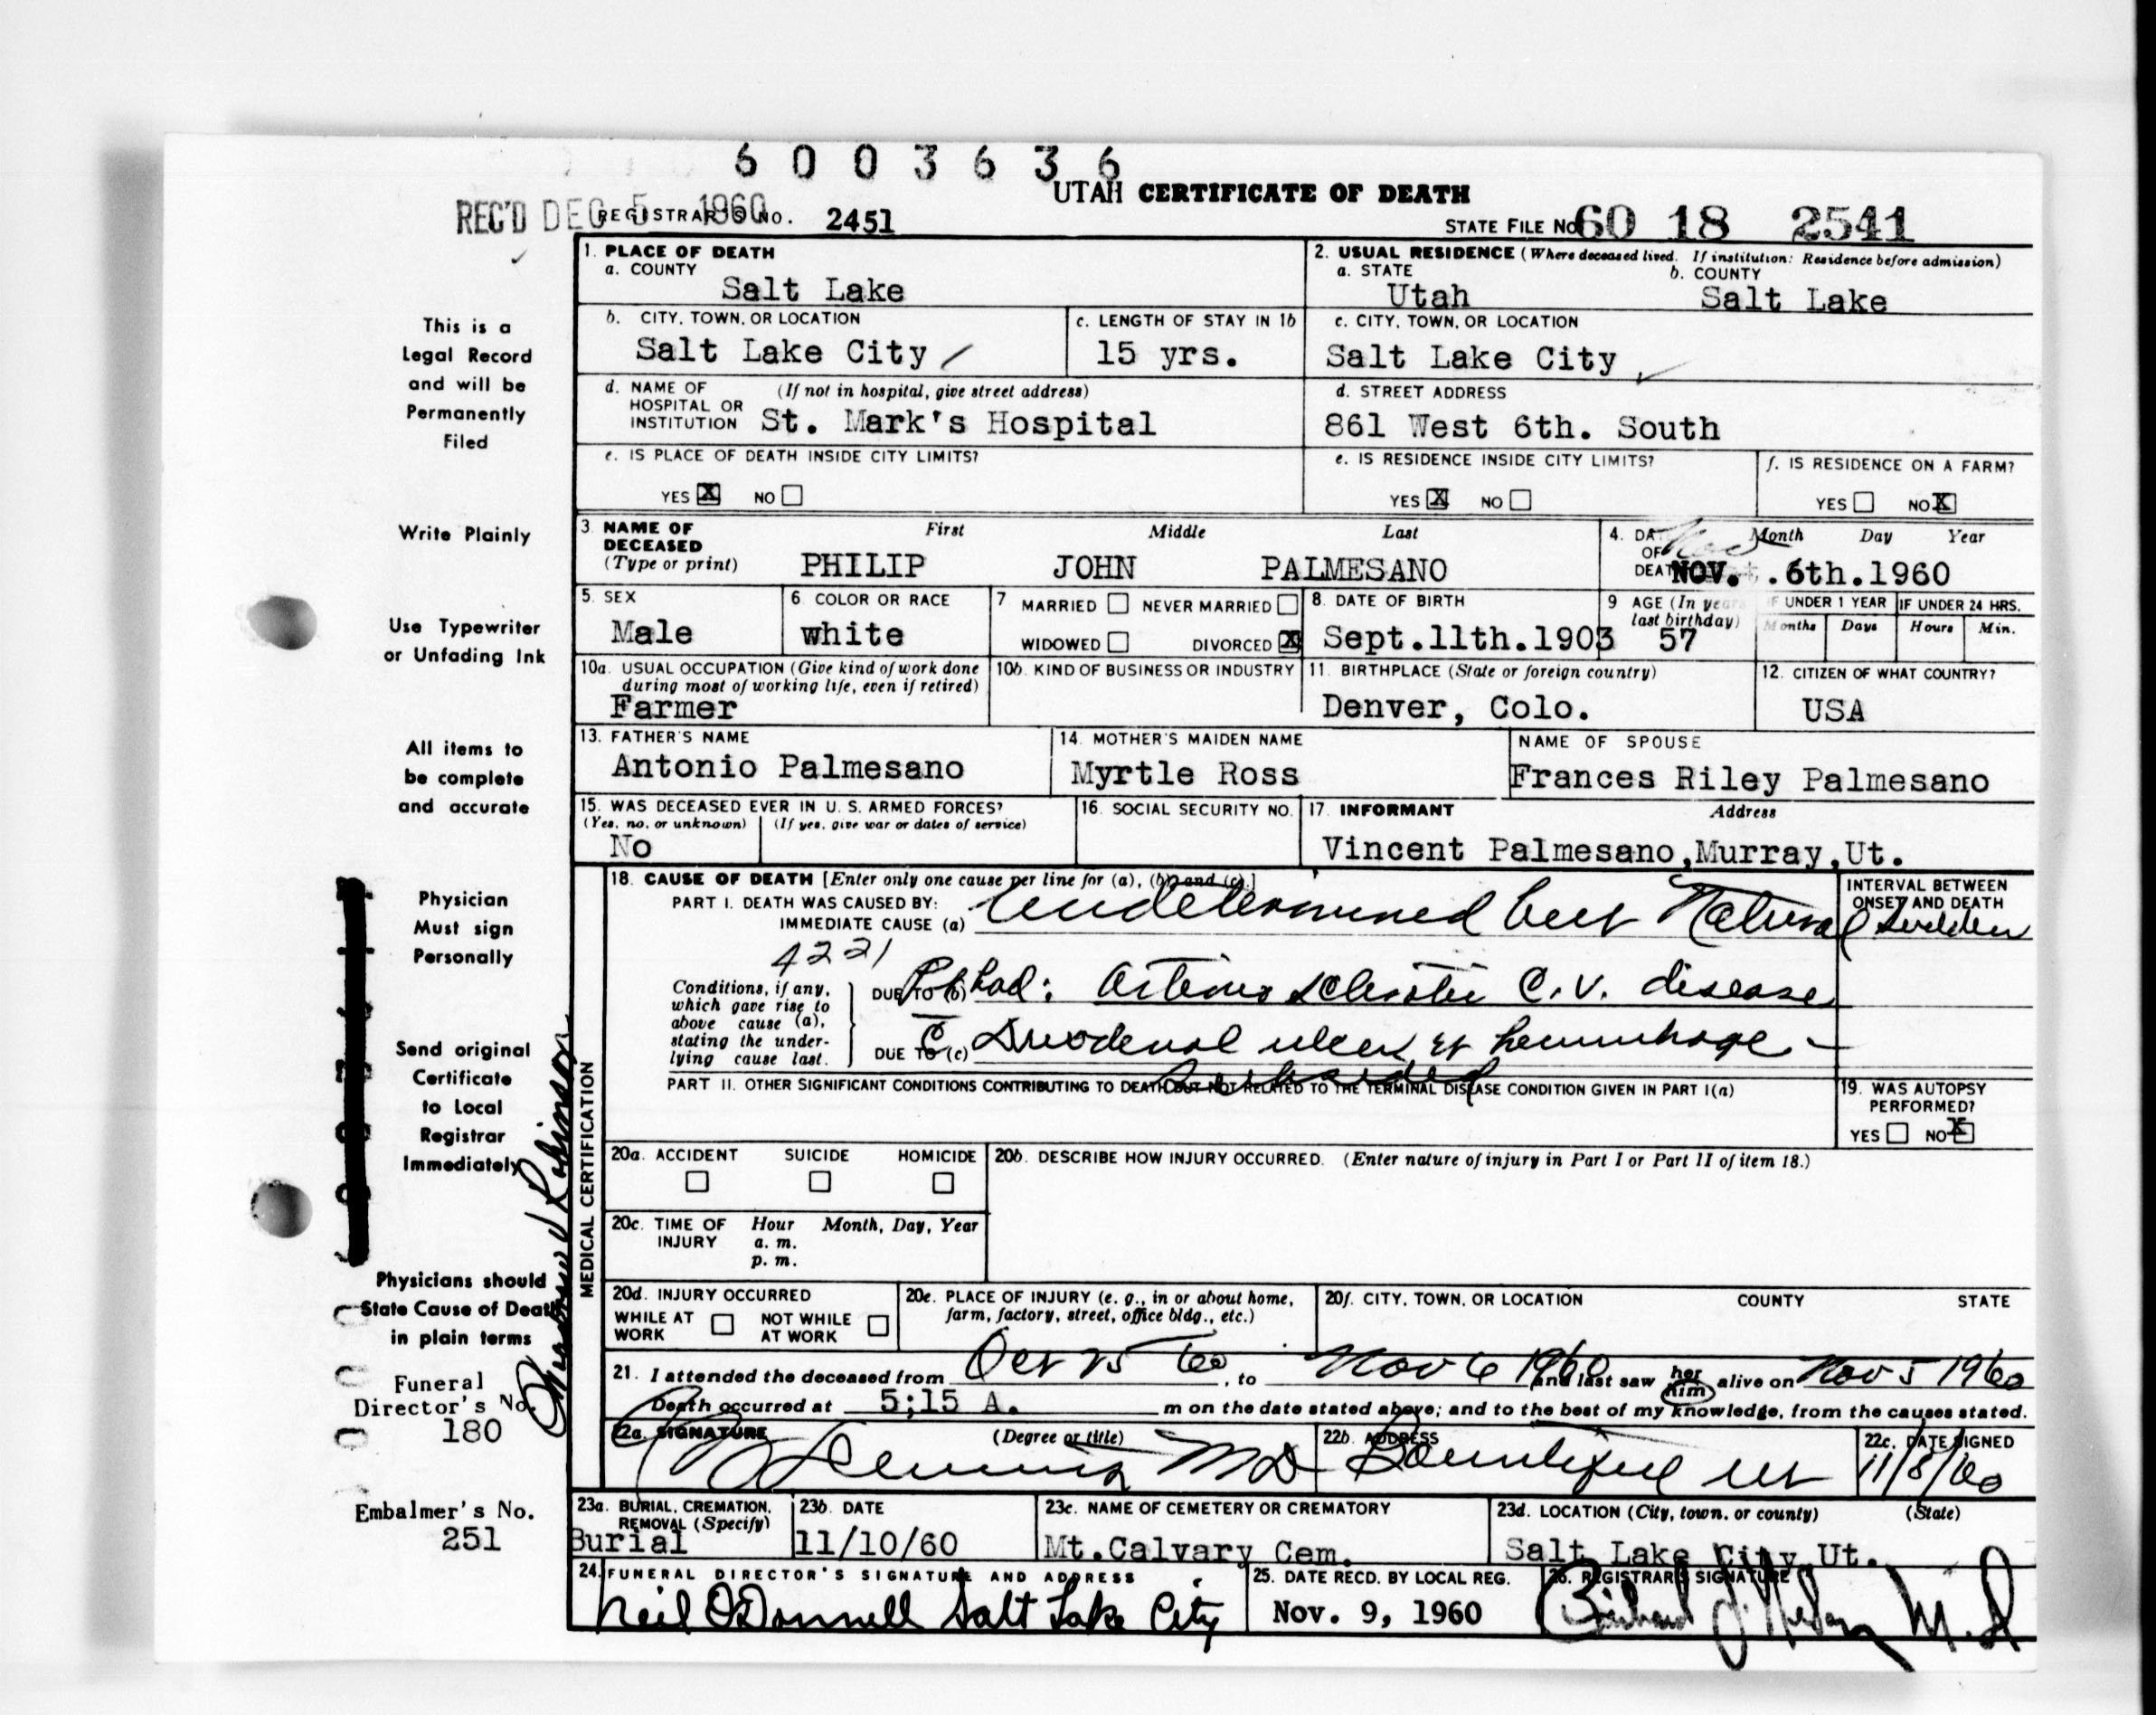 6 0 0 3 6 3 6
UTAH CERTIFICATE OF DEATH
REC'D DEC 5 1960 REGISTRAR'S NO. 2451
STATE FILE NO. 60 18 2541
1. PLACE OF DEATH
a. COUNTY
Salt Lake
2. USUAL RESIDENCE (Where deceased lived. If institution: Residence before admission)
a. STATE b. COUNTY
Utah Salt Lake
b. CITY, TOWN, OR LOCATION
Salt Lake City
c. LENGTH OF STAY IN 1b
15 yrs.
c. CITY, TOWN, OR LOCATION
Salt Lake City
d. NAME OF HOSPITAL OR INSTITUTION (If not in hospital, give street address)
St. Mark's Hospital
d. STREET ADDRESS
861 West 6th. South
e. IS PLACE OF DEATH INSIDE CITY LIMITS?
YES X NO
e. IS RESIDENCE INSIDE CITY LIMITS?
YES X NO
f. IS RESIDENCE ON A FARM?
YES NO X
3. NAME OF DECEASED (Type or print)
First Middle Last
PHILIP JOHN PALMESANO
4. DATE OF DEATH Month Day Year
Nov
NOV. 6th.1960
5. SEX
Male
6. COLOR OR RACE
white
7 MARRIED NEVER MARRIED
WIDOWED DIVORCED X
8. DATE OF BIRTH
Sept.11th.1903
9 AGE (In years last birthday)
57
IF UNDER 1 YEAR IF UNDER 24 HRS.
Months Days Hours Min.
10a. USUAL OCCUPATION (Give kind of work done during most of working life, even if retired)
Farmer
10b. KIND OF BUSINESS OR INDUSTRY
11. BIRTHPLACE (State or foreign country)
Denver, Colo.
12. CITIZEN OF WHAT COUNTRY?
USA
13. FATHER'S NAME
Antonio Palmesano
14. MOTHER'S MAIDEN NAME
Myrtle Ross
NAME OF SPOUSE
Frances Riley Palmesano
15. WAS DECEASED EVER IN U. S. ARMED FORCES?
(Yes, no, or unknown) (If yes, give war or dates of service)
No
16. SOCIAL SECURITY NO.
17. INFORMANT Address
Vincent Palmesano,Murray,Ut.
18. CAUSE OF DEATH [Enter only one cause per line for (a), (b) and (c).]
PART I. DEATH WAS CAUSED BY:
IMMEDIATE CAUSE (a) Undetermined but Natural
INTERVAL BETWEEN ONSET AND DEATH
Sudden
4221
Conditions, if any, which gave rise to above cause (a), stating the underlying cause last.
DUE TO (b) Pt had: Arterio sclerotic C.V. disease
DUE TO (c) c̄ Duodenal ulcer & hemorrhage -
PART II. OTHER SIGNIFICANT CONDITIONS CONTRIBUTING TO DEATH BUT NOT RELATED TO THE TERMINAL DISEASE CONDITION GIVEN IN PART I(a)
19. WAS AUTOPSY PERFORMED?
YES NO X
20a. ACCIDENT SUICIDE HOMICIDE
20b. DESCRIBE HOW INJURY OCCURRED. (Enter nature of injury in Part I or Part II of item 18.)
20c. TIME OF INJURY Hour Month, Day, Year
a. m.
p. m.
20d. INJURY OCCURRED
WHILE AT WORK NOT WHILE AT WORK
20e. PLACE OF INJURY (e. g., in or about home, farm, factory, street, office bldg., etc.)
20f. CITY, TOWN, OR LOCATION COUNTY STATE
21. I attended the deceased from Oct 25 60, to Nov 6 1960 and last saw her him alive on Nov 5 1960
Death occurred at 5;15 A. m on the date stated above; and to the best of my knowledge, from the causes stated.
22a. SIGNATURE (Degree or title)
MD
22b. ADDRESS
Bountiful Ut
22c. DATE SIGNED
11/8/60
23a. BURIAL, CREMATION, REMOVAL (Specify)
Burial
23b. DATE
11/10/60
23c. NAME OF CEMETERY OR CREMATORY
Mt.Calvary Cem.
23d. LOCATION (City, town, or county) (State)
Salt Lake City Ut.
24. FUNERAL DIRECTOR'S SIGNATURE AND ADDRESS
Neil O'Donnell Salt Lake City
25. DATE RECD. BY LOCAL REG.
Nov. 9, 1960
26. REGISTRAR'S SIGNATURE
Richard J. Nelson M.D
MEDICAL CERTIFICATION
This is a
Legal Record
and will be
Permanently
Filed
Write Plainly
Use Typewriter
or Unfading Ink
All items to
be complete
and accurate
Physician
Must sign
Personally
Send original
Certificate
to Local
Registrar
Immediately
Physicians should
State Cause of Death
in plain terms
Funeral
Director's No.
180
Embalmer's No.
251
Robinson